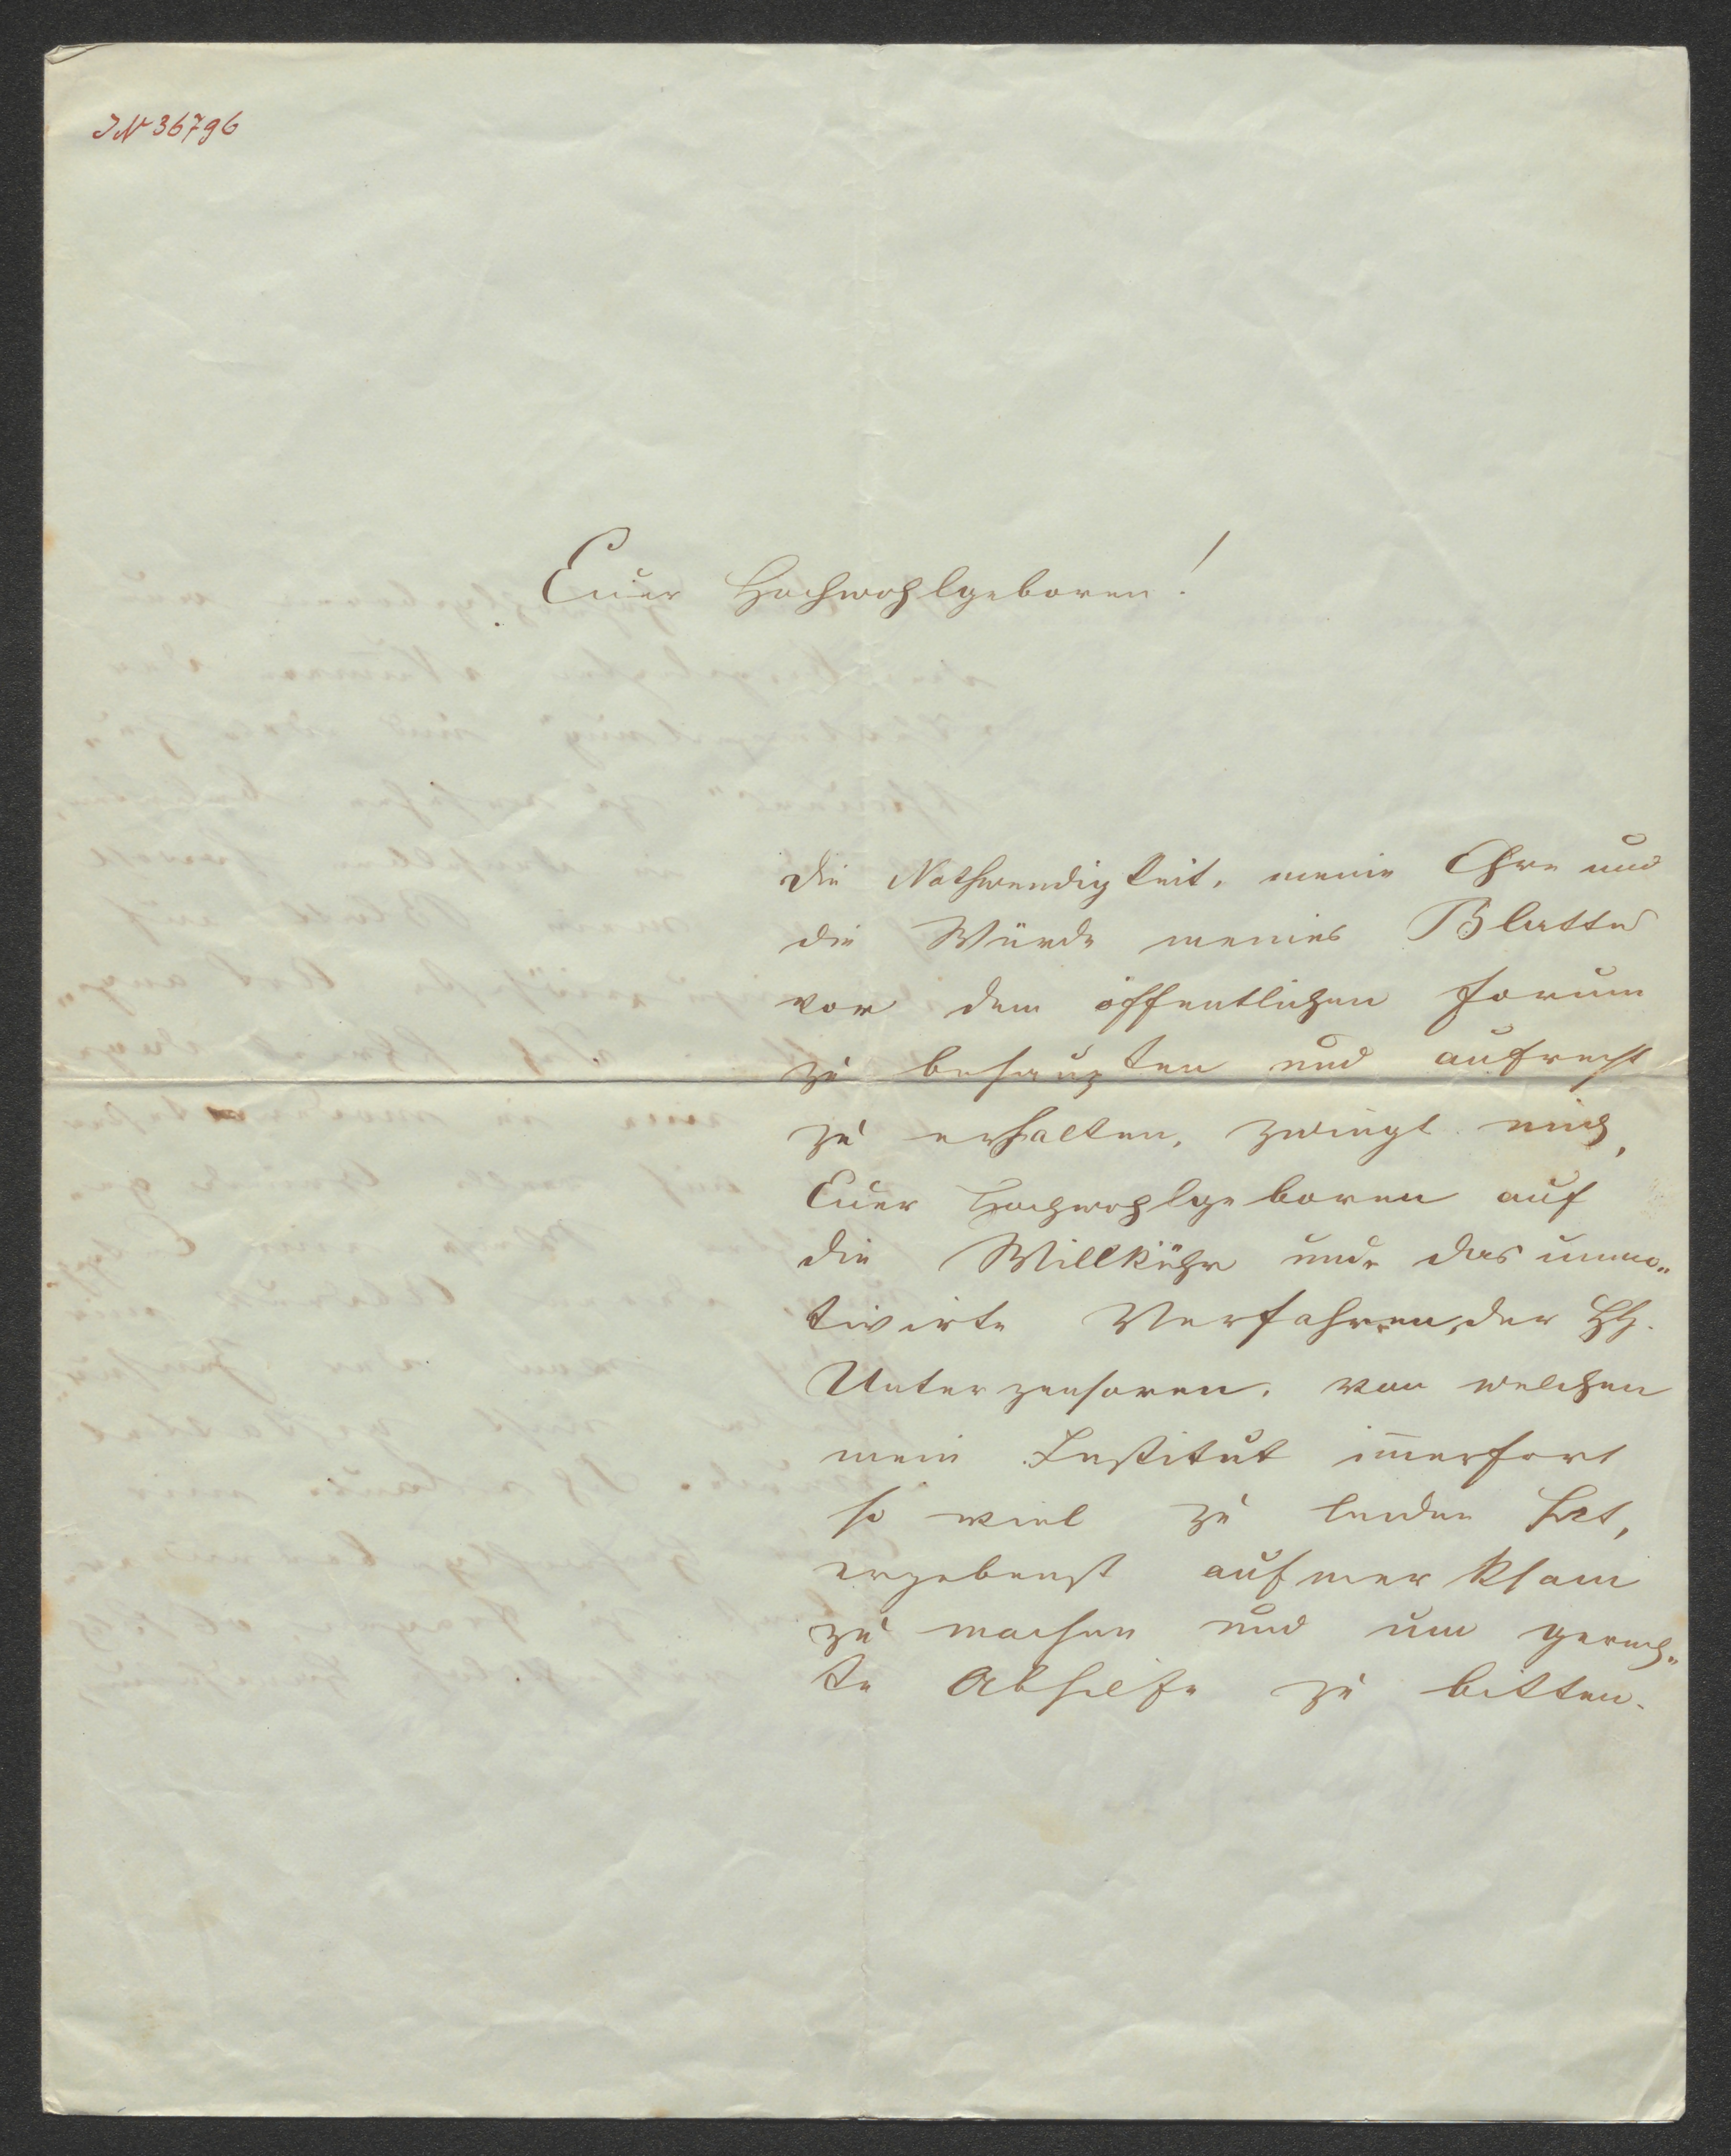 JN 36796
Euer Hochwohlgeboren!
Die Nothwendigkeit, meine Ehre und
die Würde meines Blattes
vor dem öffentlichen Forum
zu behaupten und aufrecht
zu erhalten, zwingt mich,
Euer Hochwohlgeboren auf
die Willkühr und das unmo„
tivirte Verfahren der HH.
Unterzensoren, von welchen
mein Institut im̅erfort
so viel zu leiden hat,
ergebenst aufmerksam
zu machen und um gerech„
te Abhilfe zu bitten.